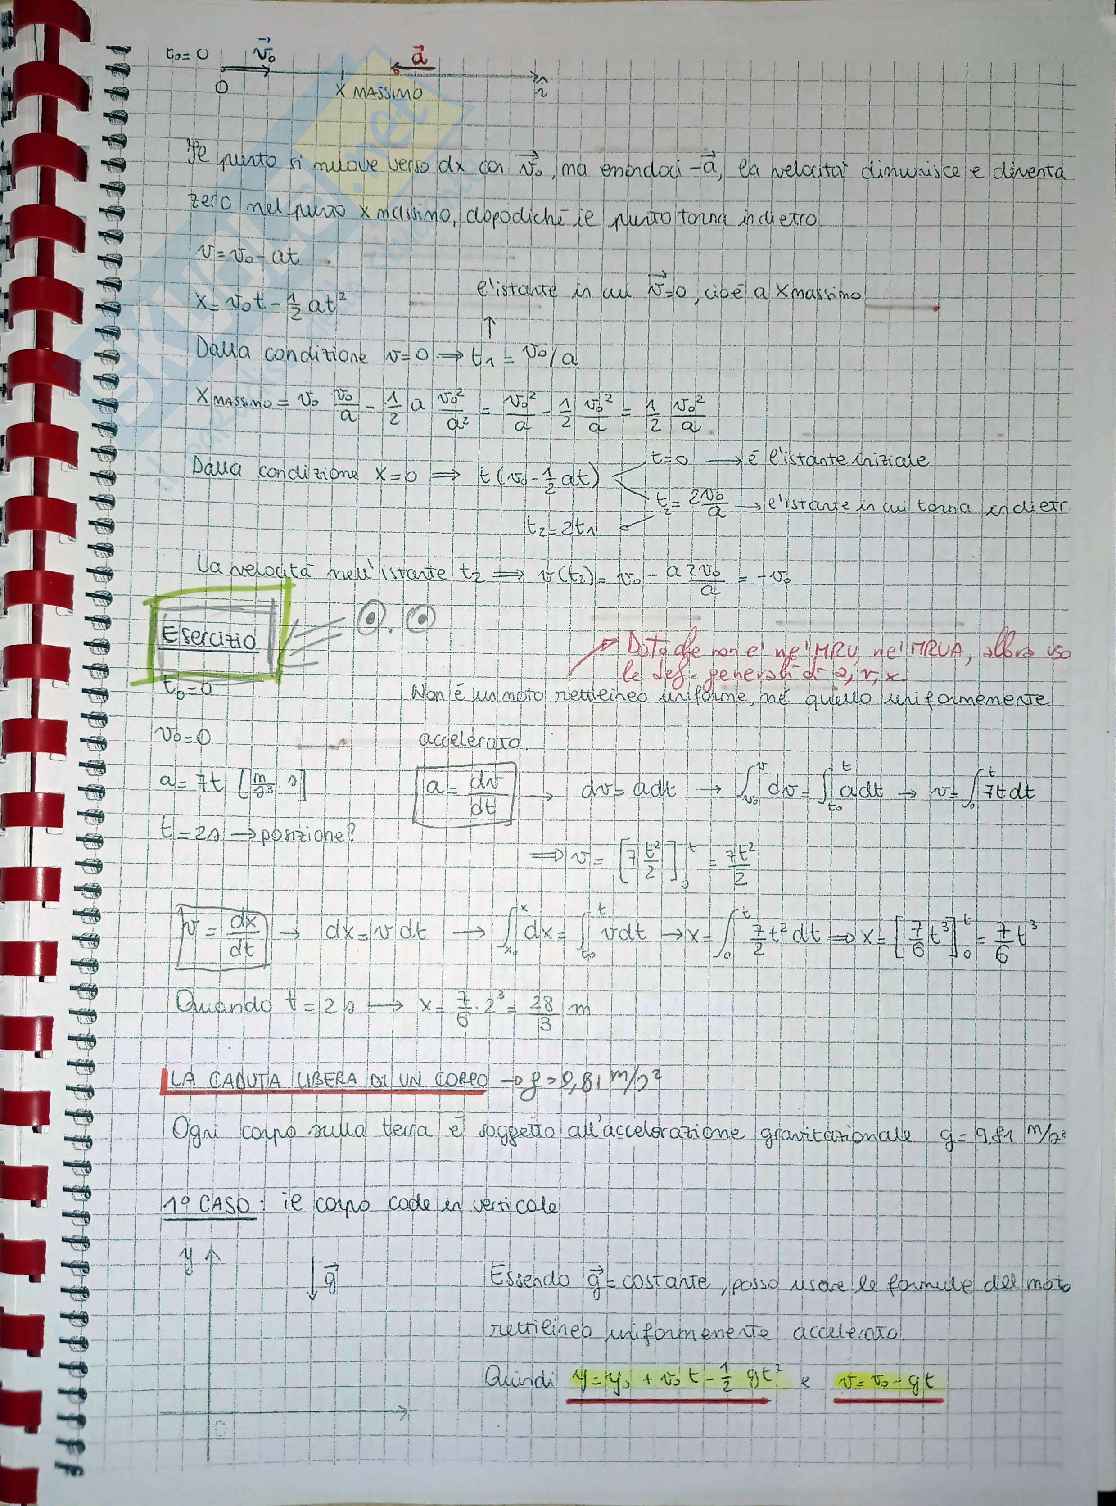 t₀=0 v⃗₀ a⃗
0 X MASSIMO x̂
Il punto si muove verso dx con v⃗₀, ma essendoci -a⃗, la velocità diminuisce e diventa
zero nel punto x massimo, dopodiché il punto torna indietro.
v=v₀-at
l'istante in cui v⃗=0, cioè a Xmassimo
x=v₀t-½at²
↑
Dalla condizione v=0 → t₁=v₀/a
X MASSIMO = v₀ v₀/a - 1/2 a v₀²/a² = v₀²/a - 1/2 v₀²/a = 1/2 v₀²/a
Dalla condizione x=0 ⇒ t(v₀-½at) t=0 → è l'istante iniziale
t₂=2v₀/a → l'istante in cui torna indietr
t₂=2t₁
La velocità nell'istante t₂ ⇒ v(t₂)= v₀ - a 2v₀/a = -v₀
Esercizio
Dato che non e' ne' MRU, ne' MRUA, allora uso
le def. generali di a, v, x
t₀=0 Non è un moto rettilineo uniforme, né quello uniformemente
v₀=0 accelerato
a=7t [m/s³ s] a=dv/dt → dv=adt → ∫ᵥ₀ᵛ dv=∫ₜ₀ᵗ adt → v=∫₀ᵗ 7tdt
t=2s → posizione?
⇒ v= [7 t²/2]₀ᵗ = 7t²/2
v=dx/dt → dx=vdt → ∫ₓ₀ˣ dx=∫ₜ₀ᵗ vdt → x=∫₀ᵗ 7/2 t²dt ⇒ x=[7/6 t³]₀ᵗ = 7/6 t³
Quando t=2s → x=7/6·2³=28/3 m
LA CADUTA LIBERA DI UN CORPO → g=9,81 m/s²
Ogni corpo sulla terra è soggetto all'accelerazione gravitazionale g=9,81 m/s²
1º CASO: il corpo cade in verticale
y g⃗
Essendo g⃗=costante, posso usare le formule del moto
rettilineo uniformemente accelerato.
Quindi y=y₀+v₀t-½gt² e v=v₀-gt
0